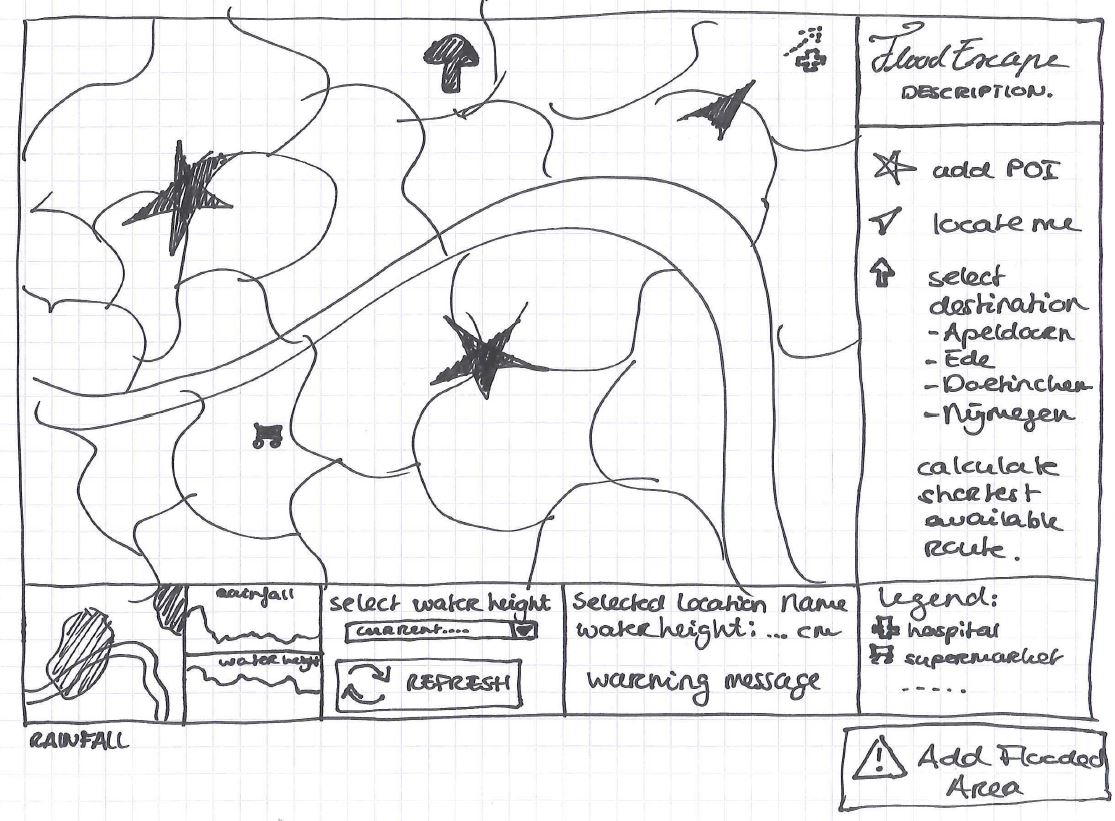 Flood Escape
DESCRIPTION.
add POI
locate me
select
destination
- Apeldoorn
- Ede
- Doetinchem
- Nijmegen
calculate
shortest
available
route.
rainfall
water height
select water height
current....
REFRESH
Selected Location Name
waterheight: ... cm
warning message
Legend:
hospital
supermarket
.....
RAINFALL
Add Flooded
Area